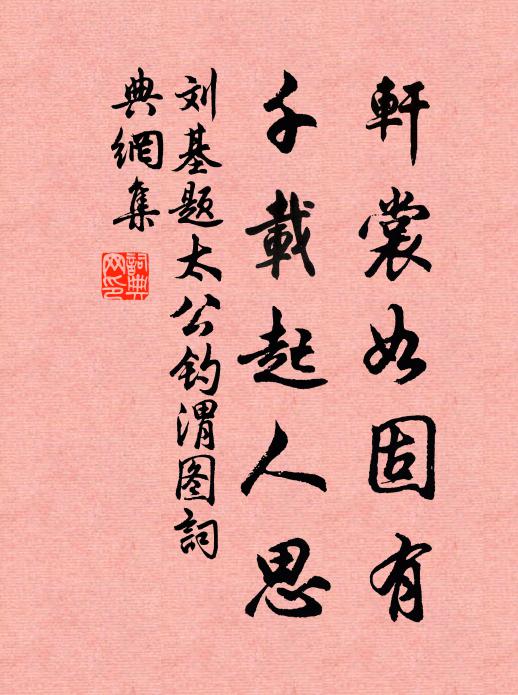 軒裳如固有
千載起人思
刘基题太公钓渭图詞
典網集
詞典網印